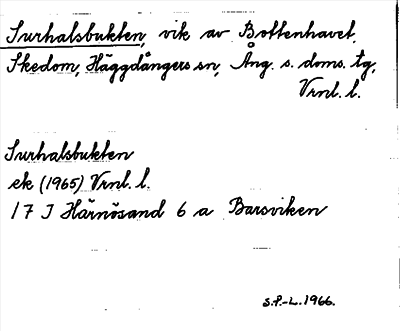 Surhalsbukten, vik av Bottenhavet.
Skedom, Häggdångers sn, Ång. s. doms. tg,
Vrnl. l.
Surhalsbukten
ek (1965) Vrnl. l.
17 J Härnösand 6 a Barsviken
S.P.-L. 1966.